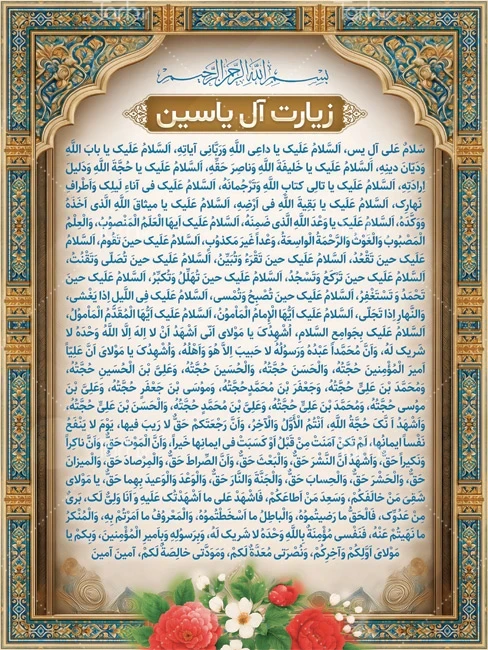 بسم الله الرحمن الرحیم
زیارت آل یاسین
سَلامٌ عَلی آلِ یس، اَلسَّلامُ عَلَیک یا داعِی اللَّهِ وَرَبّانِی آیاتِهِ، اَلسَّلامُ عَلَیک یا بابَ اللَّهِ
وَدَیانَ دینِهِ، اَلسَّلامُ عَلَیک یا خَلیفَةَ اللَّهِ وَناصِرَ حَقِّهِ، اَلسَّلامُ عَلَیک یا حُجَّةَ اللَّهِ وَدَلیلَ
اِرادَتِهِ، اَلسَّلامُ عَلَیک یا تالِی کتابِ اللَّهِ وَتَرْجُمانَهُ، اَلسَّلامُ عَلَیک فی آناءِ لَیلِک وَاَطْرافِ
نَهارِک، اَلسَّلامُ عَلَیک یا بَقِیةَ اللَّهِ فی اَرْضِهِ، اَلسَّلامُ عَلَیک یا میثاقَ اللَّهِ الَّذی اَخَذَهُ
وَوَکدَهُ، اَلسَّلامُ عَلَیک یا وَعْدَ اللَّهِ الَّذی ضَمِنَهُ، اَلسَّلامُ عَلَیک اَیهَا الْعَلَمُ الْمَنْصُوبُ، وَالْعِلْمُ
الْمَصْبُوبُ وَالْغَوْثُ وَالرَّحْمَةُ الْواسِعَةُ، وَعْداً غَیرَ مَکذُوبٍ، اَلسَّلامُ عَلَیک حینَ تَقُومُ، اَلسَّلامُ
عَلَیک حینَ تَقْعُدُ، اَلسَّلامُ عَلَیک حینَ تَقْرَءُ وَتُبَینُ، اَلسَّلامُ عَلَیک حینَ تُصَلّی وَتَقْنُتُ،
اَلسَّلامُ عَلَیک حینَ تَرْکعُ وَتَسْجُدُ، اَلسَّلامُ عَلَیک حینَ تُهَلِّلُ وَتُکبِّرُ، اَلسَّلامُ عَلَیک حینَ
تَحْمَدُ وَتَسْتَغْفِرُ، اَلسَّلامُ عَلَیک حینَ تُصْبِحُ وَتُمْسی، اَلسَّلامُ عَلَیک فِی اللَّیلِ اِذا یغْشی،
وَالنَّهارِ اِذا تَجَلّی، اَلسَّلامُ عَلَیک اَیهَا الْإِمامُ الْمَأْمُونُ، اَلسَّلامُ عَلَیک اَیهَا الْمُقَدَّمُ الْمَأْمُولُ،
اَلسَّلامُ عَلَیک بِجَوامِعِ السَّلامِ، اُشْهِدُک یا مَوْلای اَنّی اَشْهَدُ اَنْ لا اِلهَ اِلَّا اللَّهُ وَحْدَهُ لا
شَریک لَهُ، وَاَنَّ مُحَمَّداً عَبْدُهُ وَرَسُولُهُ لا حَبیبَ اِلاَّ هُوَ وَاَهْلُهُ، وَاُشْهِدُک یا مَوْلای اَنَّ عَلِیاً
اَمیرَ الْمُؤْمِنینَ حُجَّتُهُ، وَالْحَسَنَ حُجَّتُهُ، وَالْحُسَینَ حُجَّتُهُ، وَعَلِی بْنَ الْحُسَینِ حُجَّتُهُ،
وَمُحَمَّدَ بْنَ عَلِی حُجَّتُهُ، وَجَعْفَرَ بْنَ مُحَمَّدٍ حُجَّتُهُ، وَمُوسَی بْنَ جَعْفَرٍ حُجَّتُهُ، وَعَلِی بْنَ
مُوسی حُجَّتُهُ، وَمُحَمَّدَ بْنَ عَلِی حُجَّتُهُ، وَعَلِی بْنَ مُحَمَّدٍ حُجَّتُهُ، وَالْحَسَنَ بْنَ عَلِی حُجَّتُهُ،
وَاَشْهَدُ اَنَّک حُجَّةُ اللَّهِ، اَنْتُمُ الْأَوَّلُ وَالْآخِرُ، وَاَنَّ رَجْعَتَکمْ حَقٌّ لا رَیبَ فیها، یوْمَ لا ینْفَعُ
نَفْساً ایمانُها، لَمْ تَکنْ آمَنَتْ مِنْ قَبْلُ اَوْ کسَبَتْ فی ایمانِها خَیراً، وَاَنَّ الْمَوْتَ حَقٌّ، وَاَنَّ ناکراً
وَنَکیراً حَقٌّ، وَاَشْهَدُ اَنَّ النَّشْرَ حَقٌّ، وَالْبَعْثَ حَقٌّ، وَاَنَّ الصِّراطَ حَقٌّ، وَالْمِرْصادَ حَقٌّ، وَالْمیزانَ
حَقٌّ، وَالْحَشْرَ حَقٌّ، وَالْحِسابَ حَقٌّ، وَالْجَنَّةَ وَالنَّارَ حَقٌّ، وَالْوَعْدَ وَالْوَعیدَ بِهِما حَقٌّ، یا مَوْلای
شَقِی مَنْ خالَفَکمْ، وَسَعِدَ مَنْ اَطاعَکمْ، فَاشْهَدْ عَلی ما اَشْهَدْتُک عَلَیهِ وَ اَنَا وَلِی لَک، بَری
مِنْ عَدُوِّک، فَالْحَقُّ ما رَضیتُمُوهُ، وَالْباطِلُ ما اَسْخَطْتُمُوهُ، وَالْمَعْرُوفُ ما اَمَرْتُمْ بِهِ، وَالْمُنْکرُ
ما نَهَیتُمْ عَنْهُ، فَنَفْسی مُؤْمِنَةٌ بِاللَّهِ وَحْدَهُ لا شَریک لَهُ، وَبِرَسُولِهِ وَبِاَمیرِ الْمُؤْمِنینَ، وَبِکمْ یا
مَوْلای اَوَّلِکمْ وَآخِرِکمْ، وَنُصْرَتی مُعَدَّةٌ لَکمْ، وَمَوَدَّتی خالِصَةٌ لَکمْ، آمینَ آمینَ